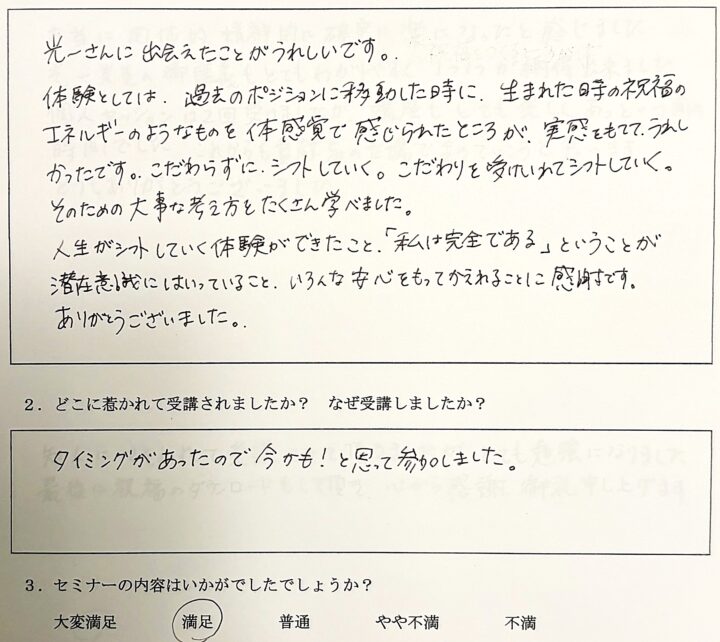 光一さんに出会えたことがうれしいです。
体験としては、過去のポジションに移動した時に、生まれた日時の祝福の
エネルギーのようなものを体感覚で感じられたところが、実感をもてて、うれし
かったです。こだわらずに、シフトしていく。こだわりを受けいれてシフトしていく。
そのための大事な考え方をたくさん学べました。
人生がシフトしていく体験ができたこと、「私は完全である」ということが
潜在意識にはいっていること、いろんな安心をもってかえれることに感謝です。
ありがとうございました。
2．どこに惹かれて受講されましたか？　なぜ受講しましたか？
タイミングがあったので今かも！と思って参加しました。
3．セミナーの内容はいかがでしたでしょうか？
大変満足　満足　普通　やや不満　不満